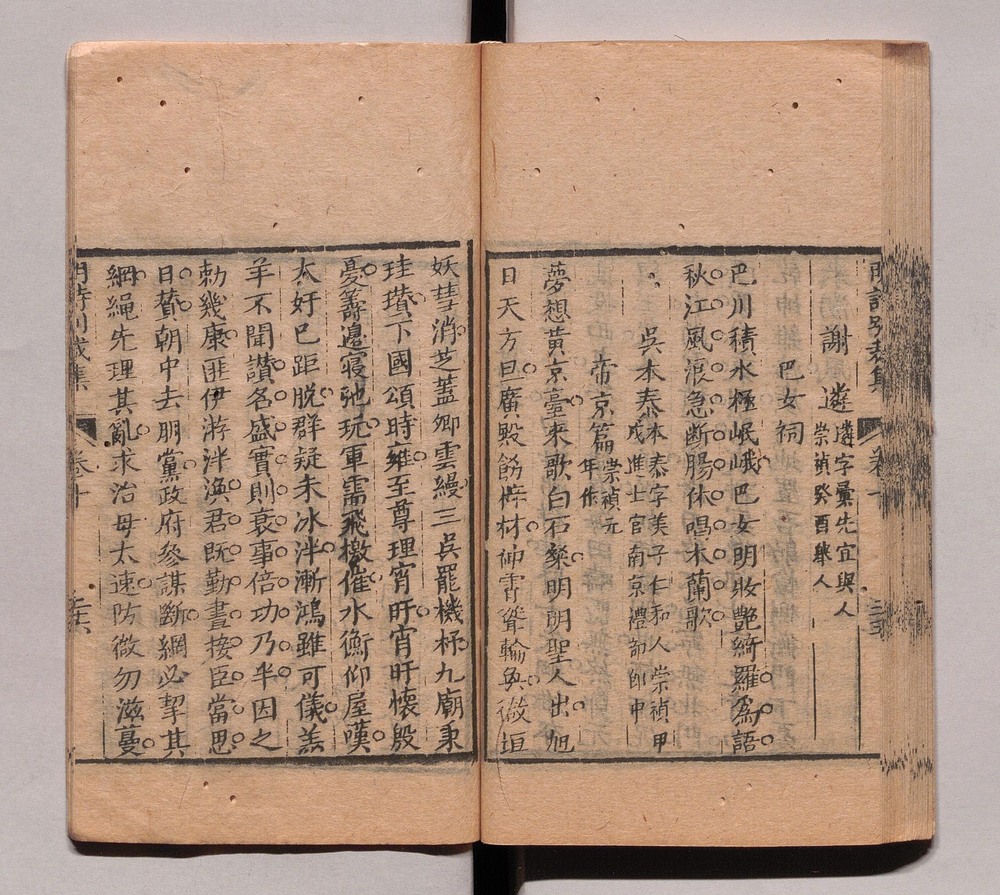 明詩別裁集 卷十
謝遴 遴字彚先宜興人崇禎癸酉舉人
巴女祠
巴川積水極岷峨巴女明妝艷綺羅爲語
秋江風浪急斷腸休唱木蘭歌
吳本泰 本泰字美子仁和人崇禎甲戌進士官南京禮部郎中
帝京篇 崇禎元年作
夢想黃京臺來歌白石粲明明聖人出旭
日天方旦廣殿餝梓材
妖彗消芝蓋卿雲縵三吳罷機杼九廟秉
珪瓚下國頌時雍至尊理宵旰宵旰懷殷
憂籌邊寢弛玩軍需飛檄催水衡仰屋嘆
太好已距脫群疑未冰泮漸鴻雖可儀羔
羊不聞讚名盛實則衰事倍功乃半因之
勅幾康匪伊游泮渙君既勤晝接臣當思
日贊朝中去朋黨政府參謀斷網必挈其
綱繩先理其亂求治毋太速防微勿滋蔓
明詩別裁集 卷十